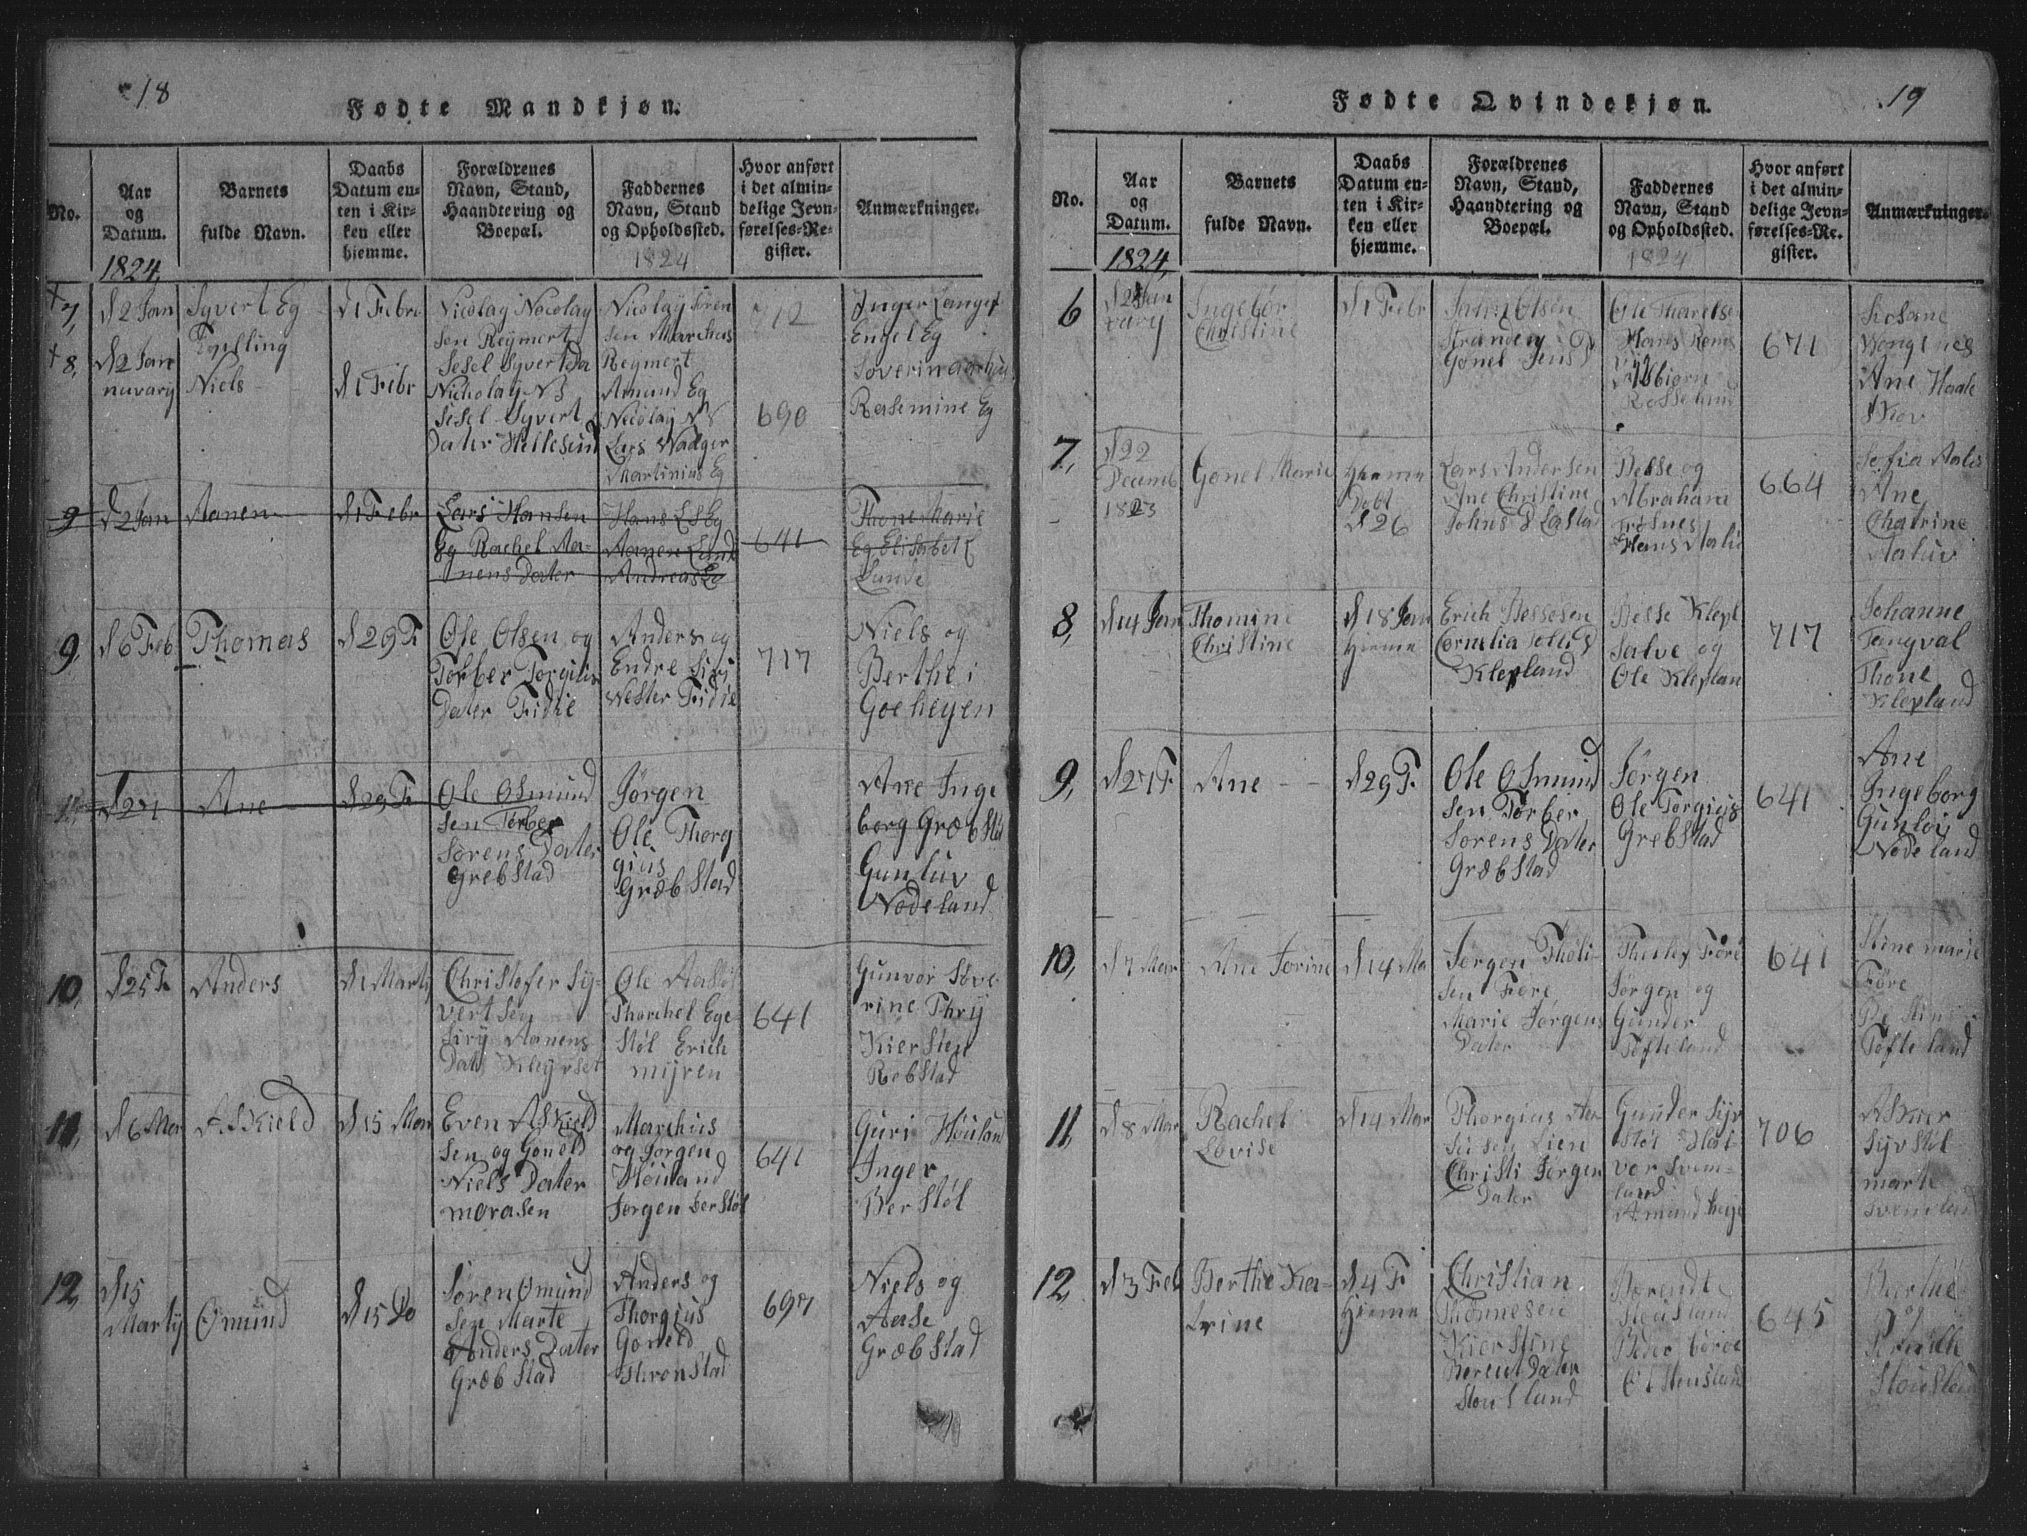 18
Fødte Mandkjøn.
No.
Aar
og
Datum.
1824
Barnets
fulde Navn.
Daabs
Datum en-
ten i Kir-
ken eller
hjemme.
Forældrenes
Navn, Stand,
Haandtering og
Boepæl.
Faddernes
Navn, Stand
og Opholdssted.
1824
Hvor anført
i det almin-
delige Jevn-
førelses-Re-
gister.
Anmærkninger.
+7,
d 2 Jan
Syvert Eg
Tvilling
d 1 Febr
Nicolay Nicolay
sen Reymert
Sesel Syvert Da
Nicolay Søren
sen Marchus
Reymert
712
Inger Langef
Engel Eg
Soverin Aarhus
+8,
d 2 Jan
nuvary
Niels
d 1 Febr
Nicholay NS
Sesel Syvert
Dater Hellesund
Amund Eg
Nicolay NS
Lars Nodger
Martinius Eg
690
Rasmine Eg
9
d 2 Jan
Aanen
d 1 Febr
Lars Hansen
Eg Rachel Aa-
nens Dater
Hans LS Eg
Aanen Lund
Andreas Eg
641
Thone Marie
Eg Elisabet E
Lunde
9,
d 6 Feb
Thomas
d 29 F
Ole Olsen og
Torber Torgius
Dater Fidie
Anders og
Endre Sigi
Wester Fidie
717
Niels og
Berthe i
Goeheyen
11
d 27
Ane
d 29 F
Ole Osmund
sen Torber
Sørens Dater
Grebstad
Jørgen
Ole Thorg
gius
Græbstad
Ane Inge
borg Græbstad
Gunluv
Nodeland
10,
d 25 F
Anders
d 1 Marty
Christofer Sy-
vertsen
Siry Aanens
Dat Kleyvset
Ole Aastøl
Thorchel Ege-
støl Erich
myren
641
Gunvor Seve-
rine Thry
Kiersten
Robstad
11,
d 6 Mar
Askield
d 15 Mar
Even Askield
sen og Goneld
Niels Dater
morasen
Marchus
og Jørgen
Høuland
Jørgen Berstøl
641
Guri Høulan
Inger
Berstøl
12,
d 15
Marty
Omund
d 15 Do
Søren Omund
sen Marte
Anders Dater
Græbstad
Anders og
Thorgius
Goneld
Stronstad
697
Niels og
Aase
Græbstad
19
Fødte Qvindekjøn.
No.
Aar
og
Datum.
1824,
Barnets
fulde Navn.
Daabs
Datum en-
ten i Kir-
ken eller
hjemme.
Forældrenes
Navn, Stand,
Haandtering og
Boepæl.
Faddernes
Navn, Stand
og Opholdssted.
1824
Hvor anført
i det almin-
delige Jevn-
førelses-Re-
gister.
Anmærkninger.
6
d 2 Jan
vary
Ingebør
Christine
d 1 Febr
Olsen
Gonel Jens D
Hans
Rosseland
671
Ane Haale
Skov
7,
d 22
Decemb
1823
Gonel Marie
Hieme
Døbt
d 26
Lars Andersen
Ane Christine
Johns D Lastad
Besse og
Abraham
Frisnes
Hans Aalu
664
Sofia Aalu
Ane
Chatrine
Aaluv
8,
d 14 Jan
Thomine
Christine
d 18 Jan
Hieme
Erich Bessesen
Cornelia
Klepland
Besse Klepl
Salve og
Ole Kleplan
717
Johanne
Tangval
Thone
Klepland
9,
d 27 F
Ane
d 29 F
Ole Osmund
sen Torber
Sørens Dater
Græbstad
Jørgen
Ole Torgius
Grebstad
641
Ane
Ingeborg
Gunlov
Nodeland
10,
d 7 Mar
Ane Jorine
d 14 Ma
Jørgen Tholi-
sen Føre
Marie Jørgens
Dater
Thollef Føre
Jørgen og
Gunder
Tofteland
641
Stine marie
Føre
Tofteland
11,
d 8 Mar
Rachel
Lovise
d 14 Mar
Thorgius Aa-
sesen Lien
Christi Jørgen
Dater
Gunder Syv
støl Hal-
vor Svem-
land
Amund heye
706
Asker
Syvstøl
marte
Svemland
12,
d 3 Feb
Berthe Ka-
trine
d 4 F
Hieme
Christian
Thomesen
Kierstine
Berent Dater
Stousland
Berendt
Stousland
Peder
645
Berthe
og
Pernille
Stousland